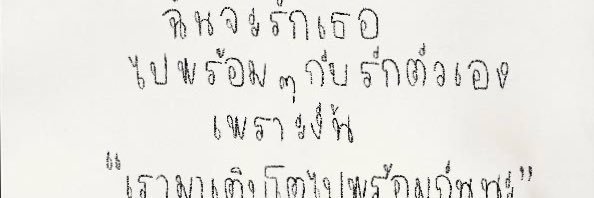 ฉันจะรักเธอ
ไปพร้อมๆกับรักตัวเอง
เพราะงั้น
"เรามาเติบโตไปพร้อมกันนะ"